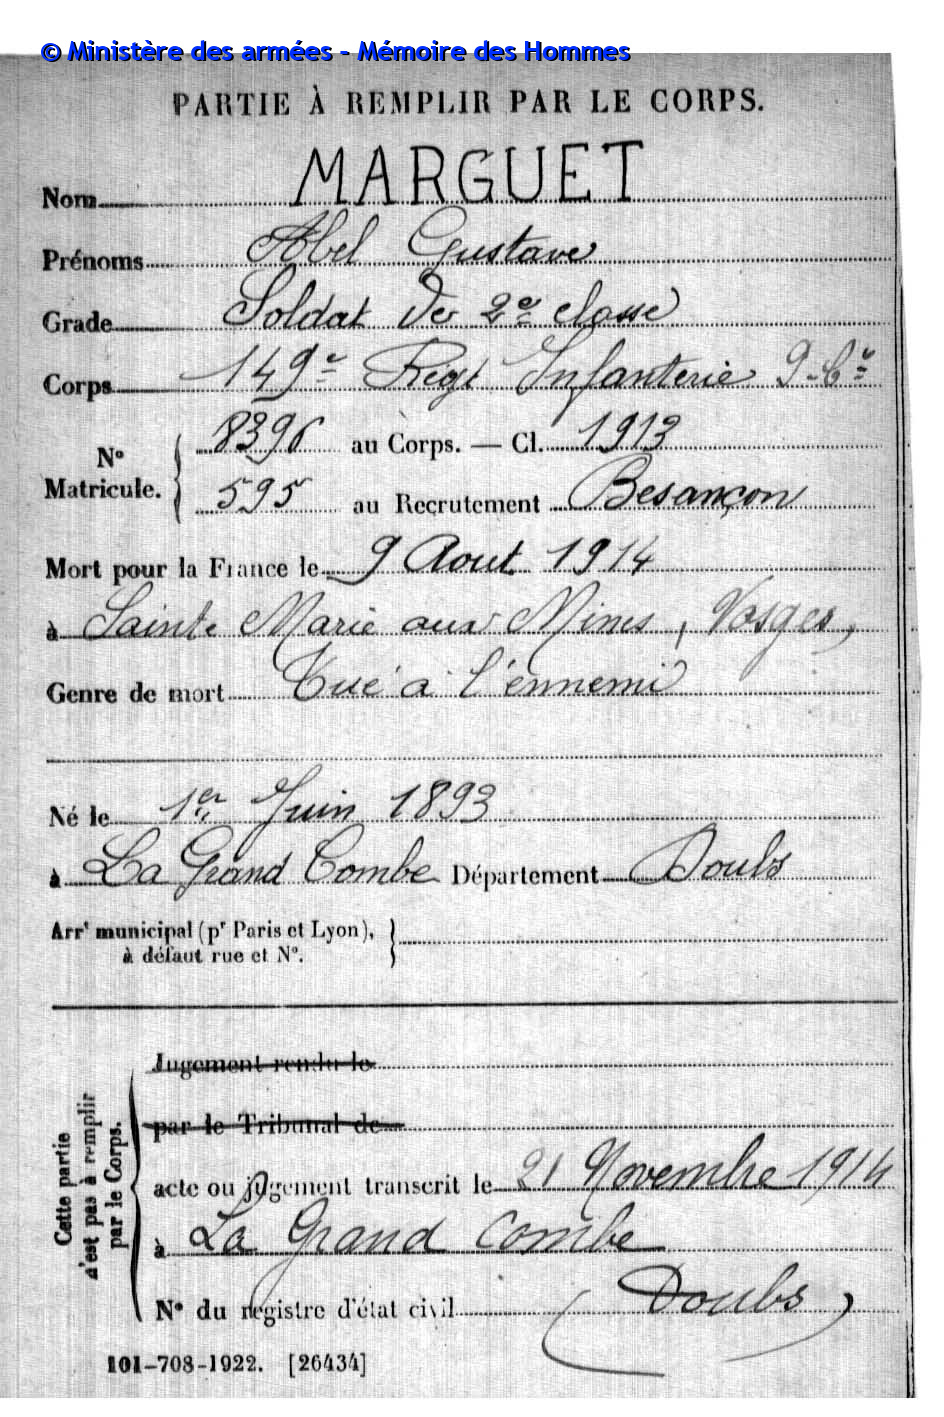 © Ministère des armées - Mémoire des Hommes
PARTIE À REMPLIR PAR LE CORPS.
Nom MARGUET
Prénoms Abel Gustave
Grade Soldat de 2e classe
Corps 149e Régt Infanterie 9e Cie
N° Matricule. 8396 au Corps. — Cl. 1913
595 au Recrutement Besançon
Mort pour la France le 9 Aout 1914
à Sainte Marie aux Mines, Vosges,
Genre de mort Tué à l'ennemi
Né le 1er Juin 1893
à La Grand Combe Département Doubs
Arrt municipal (pr Paris et Lyon),
à défaut rue et N°.
Jugement rendu le
par le Tribunal de
Cette partie
n'est pas à remplir
par le Corps.
acte ou jugement transcrit le 21 Novembre 1914
à La Grand Combe
N° du registre d'état civil (Doubs)
101-708-1922. [26434]